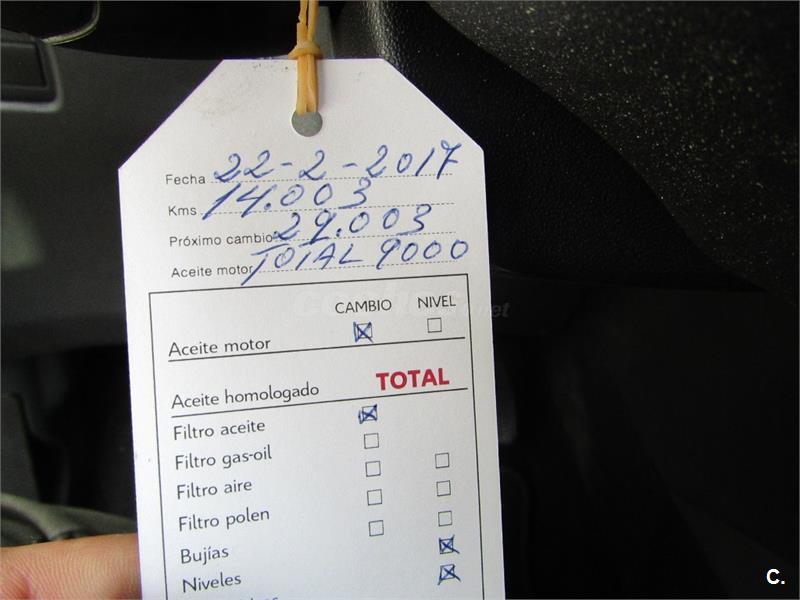 Fecha 22-2-2017
Kms 14.003
Próximo cambio 29.003
Aceite motor TOTAL 9000
CAMBIO NIVEL
Aceite motor
Aceite homologado TOTAL
Filtro aceite
Filtro gas-oil
Filtro aire
Filtro polen
Bujías
Niveles
C.